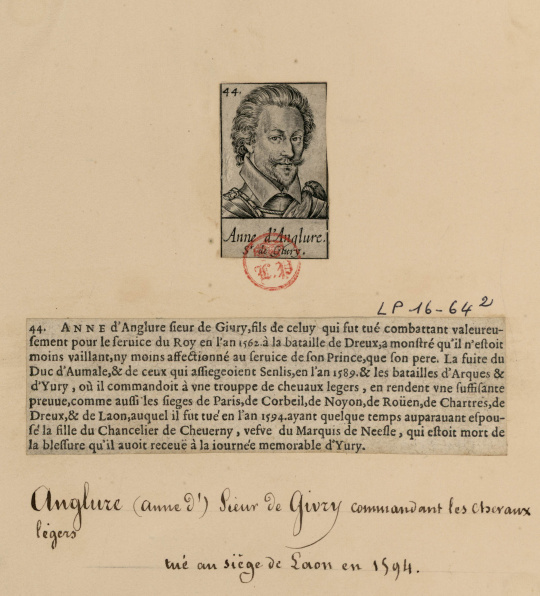 44.
Anne d'Anglure.
Sr. de Giury.
LP 16-64²
44. ANNE d'Anglure sieur de Giury, fils de celuy qui fut tué combattant valeureu-
sement pour le seruice du Roy en l'an 1562. à la bataille de Dreux, a monstré qu'il n'estoit
moins vaillant, ny moins affectionné au seruice de son Prince, que son pere. La fuite du
Duc d'Aumale, & de ceux qui assiegeoient Senlis, en l'an 1589. & les batailles d'Arques &
d'Yury, où il commandoit à vne trouppe de cheuaux legers, en rendent vne suffisante
preuue, comme aussi les sieges de Paris, de Corbeil, de Noyon, de Roüen, de Chartres, de
Dreux, & de Laon, auquel il fut tué en l'an 1594. ayant quelque temps auparauant espou-
sé la fille du Chancelier de Cheuerny, vefve du Marquis de Neesle, qui estoit mort de
la blessure qu'il auoit receuë à la iournée memorable d'Yury.
Anglure (anne d') Sieur de Givry commandant les chevaux
légers
tué au siège de Laon en 1594.